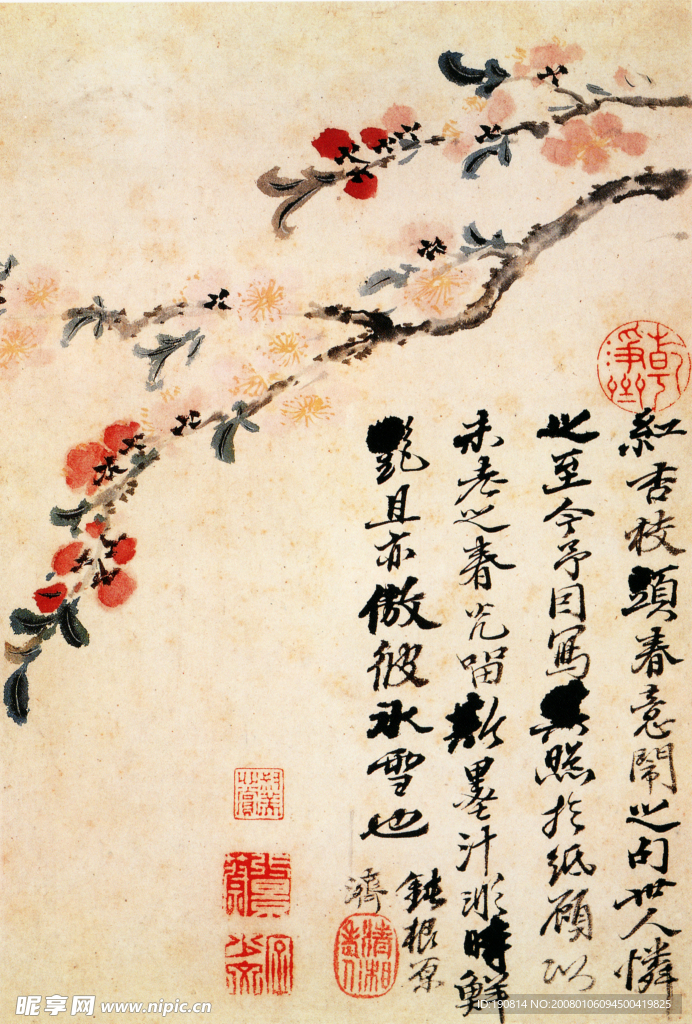 紅杏枝頭春意鬧之句世人憐
之至今予因寫其照於紙顧以
未老之春光留斯墨汁淋時鮮
艷且亦傲彼冰雪也
鈍根原
濟
清湘
昵享网 www.nipic.cn
ID:190814 NO:20080106094500419825